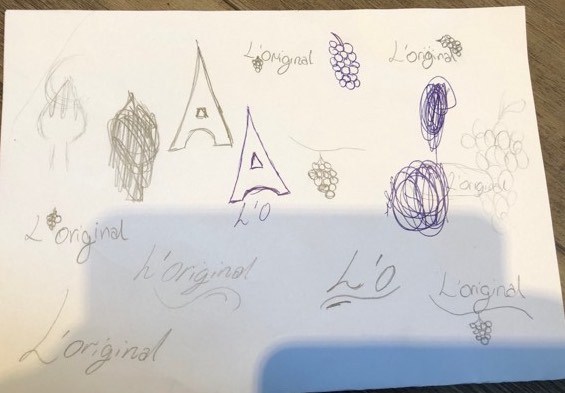 L'original
L'original
L'O
L'original
L'original
L'original
L'O
L'original
L'original